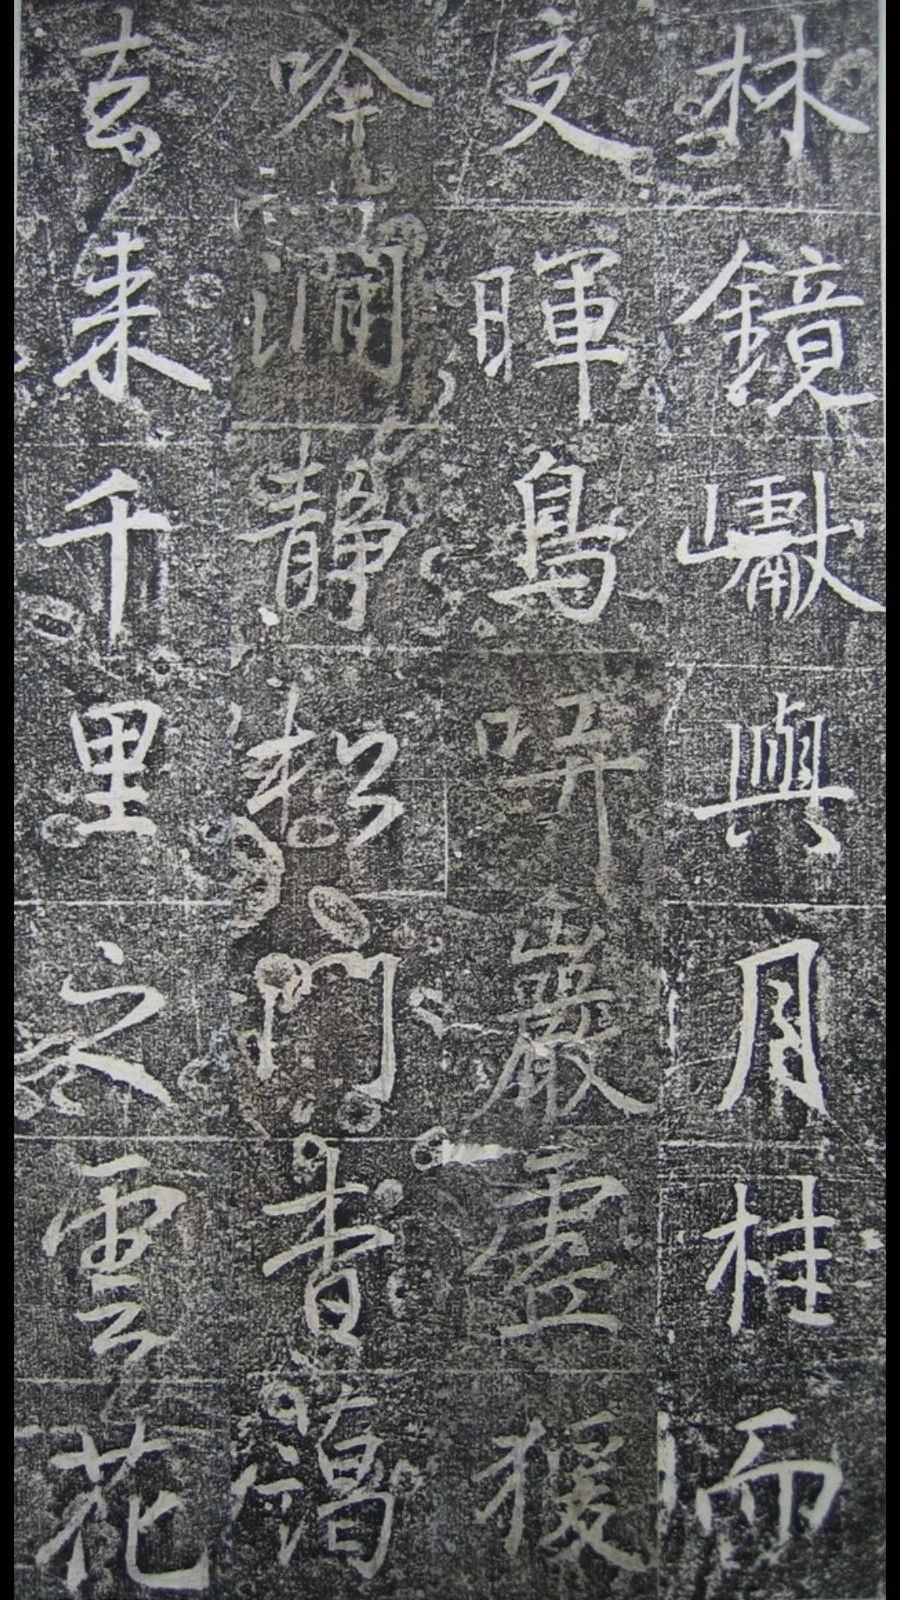 林鏡巘與月桂而
交暉鳥哢巖虛猨
吟澗靜松門杳藹
去來千里之雲花